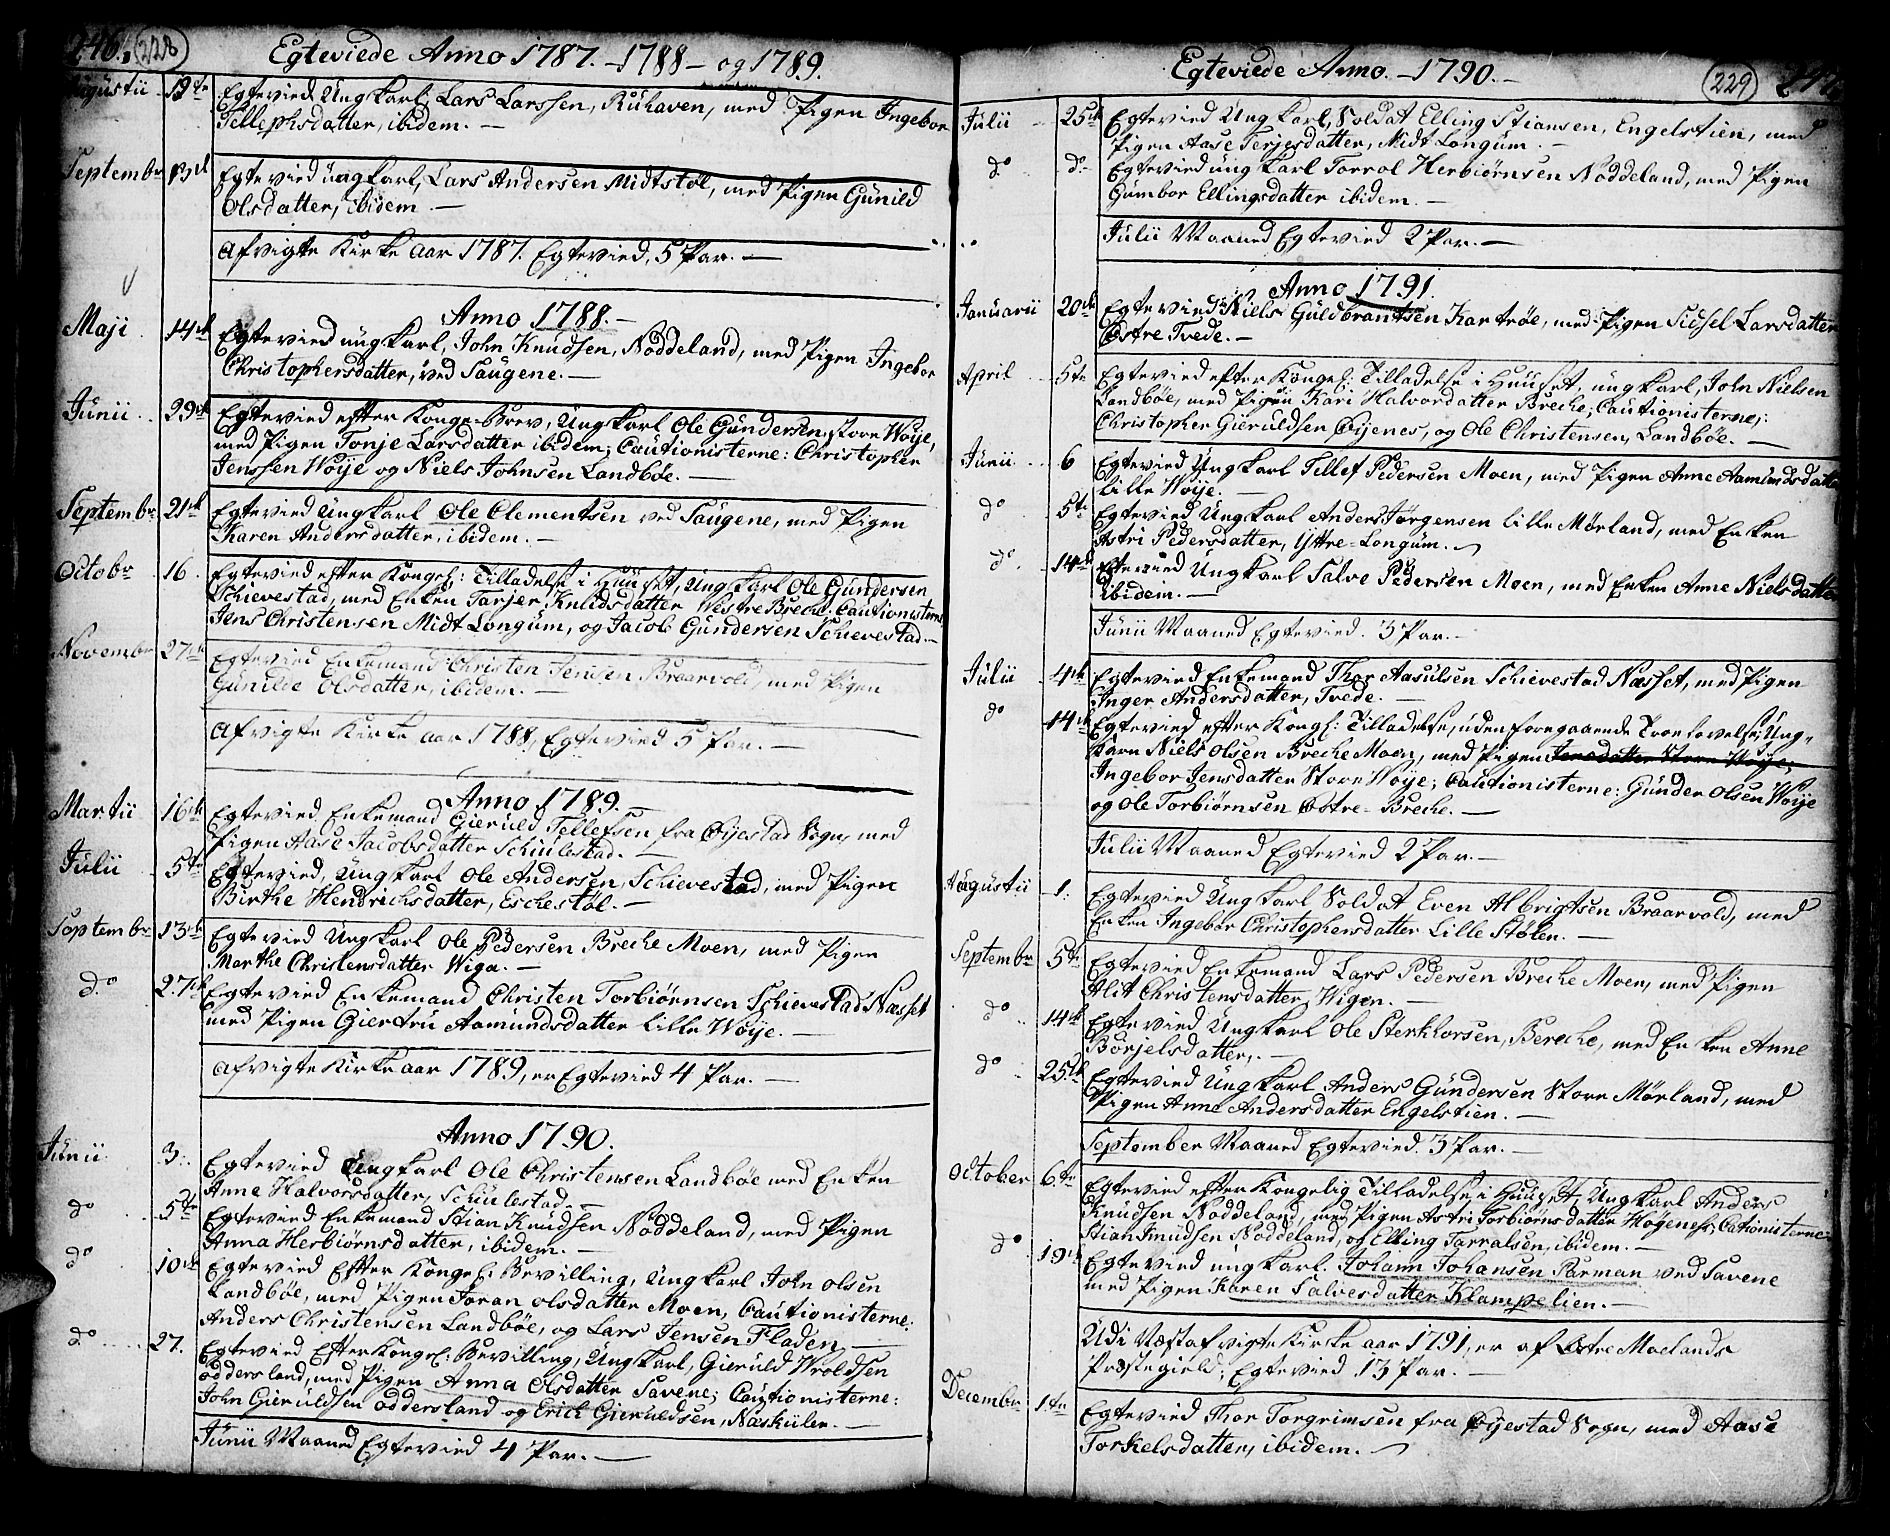 246. 228
Egteviede Anno 1787. - 1788 - og 1789.
Augustii 19de Egteviede Ungkarl, Lars Larssen, Ruhaven, med Pigen Ingebor
Tellephsdatter, ibidem. -
Septembr Egtevied ungkarl, Lars Andersen Midtstøl, med Pigen Gunild
Olsdatter, ibidem -
Afvigte Kirke aar 1787. Egtevied, 5 Par. -
Anno 1788. -
Maji 14de Egtevied ungkarl, John Knudsen, Noddeland, med Pigen Ingebor
Christophersdatter, ved Saugene. -
Junii 29de Egtevied efter Konge-Brev, Ungkarl Ole Gundersen, store Woije,
med Pigen Tonje Larsdatter ibidem; Cautionisterne: Christopher
Jenssen Woije og Niels Johnsen Landbøe. -
Septembr 21de Egtevied Ungkarl Ole Clementsen ved Saugene, med Pigen
Karen Andersdatter, ibidem. -
Octobr 16. Egtevied efter Kongel: Tilladelse i Huuset, Ungkarl Ole Gundersen
Schievestad, med Enken Tarjer Knudsdatter Westre Breche. Cautionisterne
Jens Christensen Midt Longum, og Jacob Gundersen Schievestad. -
Novembr 27de Egtevied Enkemand Christen Jensen Braarvold, med Pigen
Gunilde Olsdatter, ibidem. -
Afvigte Kirke aar 1788, Egtevied 5 Par. -
Anno 1789. -
Martii 16de Egtevied Enkemand Gieruld Tellefsen fra Øijestad Sogn, med
Pigen Aase Jacobsdatter Schiulestad. -
Julii 5te Egtevied, Ungkarl Ole Andersen, Schievestad, med Pigen
Birthe Hendrichsdatter, Eschestøl. -
Septembr 13de Egtevied Ungkarl Ole Pedersen Breche Moen, med Pigen
Marthe Christensdatter Wiga. -
do 27de Egtevied Enkemand Christen Torbiørnsen Schievestad Næsset
med Pigen Giertru Aamundsdatter Lille Woije. -
Afvigte Kirke aar 1789, er Egtevied 4 Par. -
Anno 1790.
Junii 3. Egtevied Ungkarl Ole Christensen Landbøe med Enken
Anne Halvorsdatter, Schiulestad. -
do 5te Egtevied Enkemand Stian Knudsen Noddeland, med Pigen
Anna Herbiørnsdatter, ibidem. -
do 10de Egtevied Efter Kongel: Bevilling, Ungkarl John Olsen
Landbøe, med Pigen Joran Olsdatter Moen, Cautionisterne:
Anders Christensen Landbøe, og Lars Jensen Fladen -
do 27. Egtevied Efter Kongel: Bevilling, Ungkarl, Gieruld Wroldsen
Oddersland, med Pigen Anna Olsdatter Savene; Cautionisterne:
John Gieruldsen Oddersland og Erich Gieruldsen, Naskulen. -
Junii Maaned Egtevied 4 Par. -
Egteviede Anno. - 1790. - 229
Julii 25de Egtevied Ungkarl, Soldat Elling Stiansen, Engelstien, med
Pigen Aase Terjesdatter, Midt Longum. -
do do Egtevied ungkarl Torrol Herbiørnsen Noddeland, med Pigen
Gumbor Ellingsdatter ibidem. -
Julii Maaned Egtevied 2 Par. -
Anno 1791.
Januarii 20de Egtevied Niels Guldbrantsen Kartrøe, med Pigen Sidsel Larsdatter
Østre Tvede. -
April 5te Egtevied efter Kongel: Tilladelse i Huuset, ungkarl, John Nielsen
Landbøe, med Pigen Kari Halvordatter Breche; Cautionisterne;
Christopher Gieruldsen Øijenes, og Ole Christensen, Landbøe. -
Junii 6 Egtevied Ungkarl Tellef Pedersen Moen, med Pigen Anne Aamundsdatter
lille Woije. -
do 5te Egtevied Ungkarl Anders Jørgensen lille Mørland, med Enken
Astri Pedersdatter, Yttre-Longum. -
do 14de Egtevied Ungkarl Salve Pedersen Moen, med Enken Anne Nielsdatter
ibidem. -
Junii Maaned Egtevied. 3 Par. -
Julii 4de Egtevied Enkemand Thor Aasulsen Schievestad Næsset, med Pigen
Inger Andersdatter, Tvede. -
do 14de Egtevied efter Kongl: Tilladelse, uden foregaaende Troelovelse, Ung-
karn Niels Olsen Breche Moen, med Pigen Jensdatter Store Woije;
Ingebor Jensdatter Store Woije; Cautionisterne: Gunder Olsen Woije
og Ole Torbiørnsen Østre-Breche. -
Julii Maaned Egtevied 2 Par. -
Augustii 1. Egtevied Ungkarl Soldat Even Albrigtsen Braarvold, med
Enken Ingebor Christophersdatter Lille Stølen. -
Septembr 5te Egtevied Enkemand Lars Pedersen Breche Moen, med Pigen
Alit Christensdatter, Wigen. -
do 14de Egtevied Ungkarl Ole Sterkhorsen, Bereche, med Enken Anne
Børjelsdatter, -
do 25de Egtevied Ungkarl Anders Gundersen Store Mørland, med
Pigen Anne Andersdatter Engelstien. -
September Maaned Egtevied. 3 Par. -
October 6te Egtevied efter Kongelig Tilladelse i Huuset, Ungkarl Anders
Knudsen Noddeland, med Pigen Astri Torbiørnsdatter Høgenes, Cationisterne
Stian Knudsen Noddeland, og Elling Tarralsen, ibidem. -
do 19de Egtevied ungkarl. Johann Johansen Parman ved Savene
med Pigen Karen Salvesdatter Klampelien. -
Udi Næstafvigte Kirke aar 1791, er af Østre Moelands
Præstegield; Egtevied 13 Par. -
Decembr 1te Egtevied Thor Torgrimsen fra Øijestad Sogn, med Aase
Torkelsdatter, ibidem. -